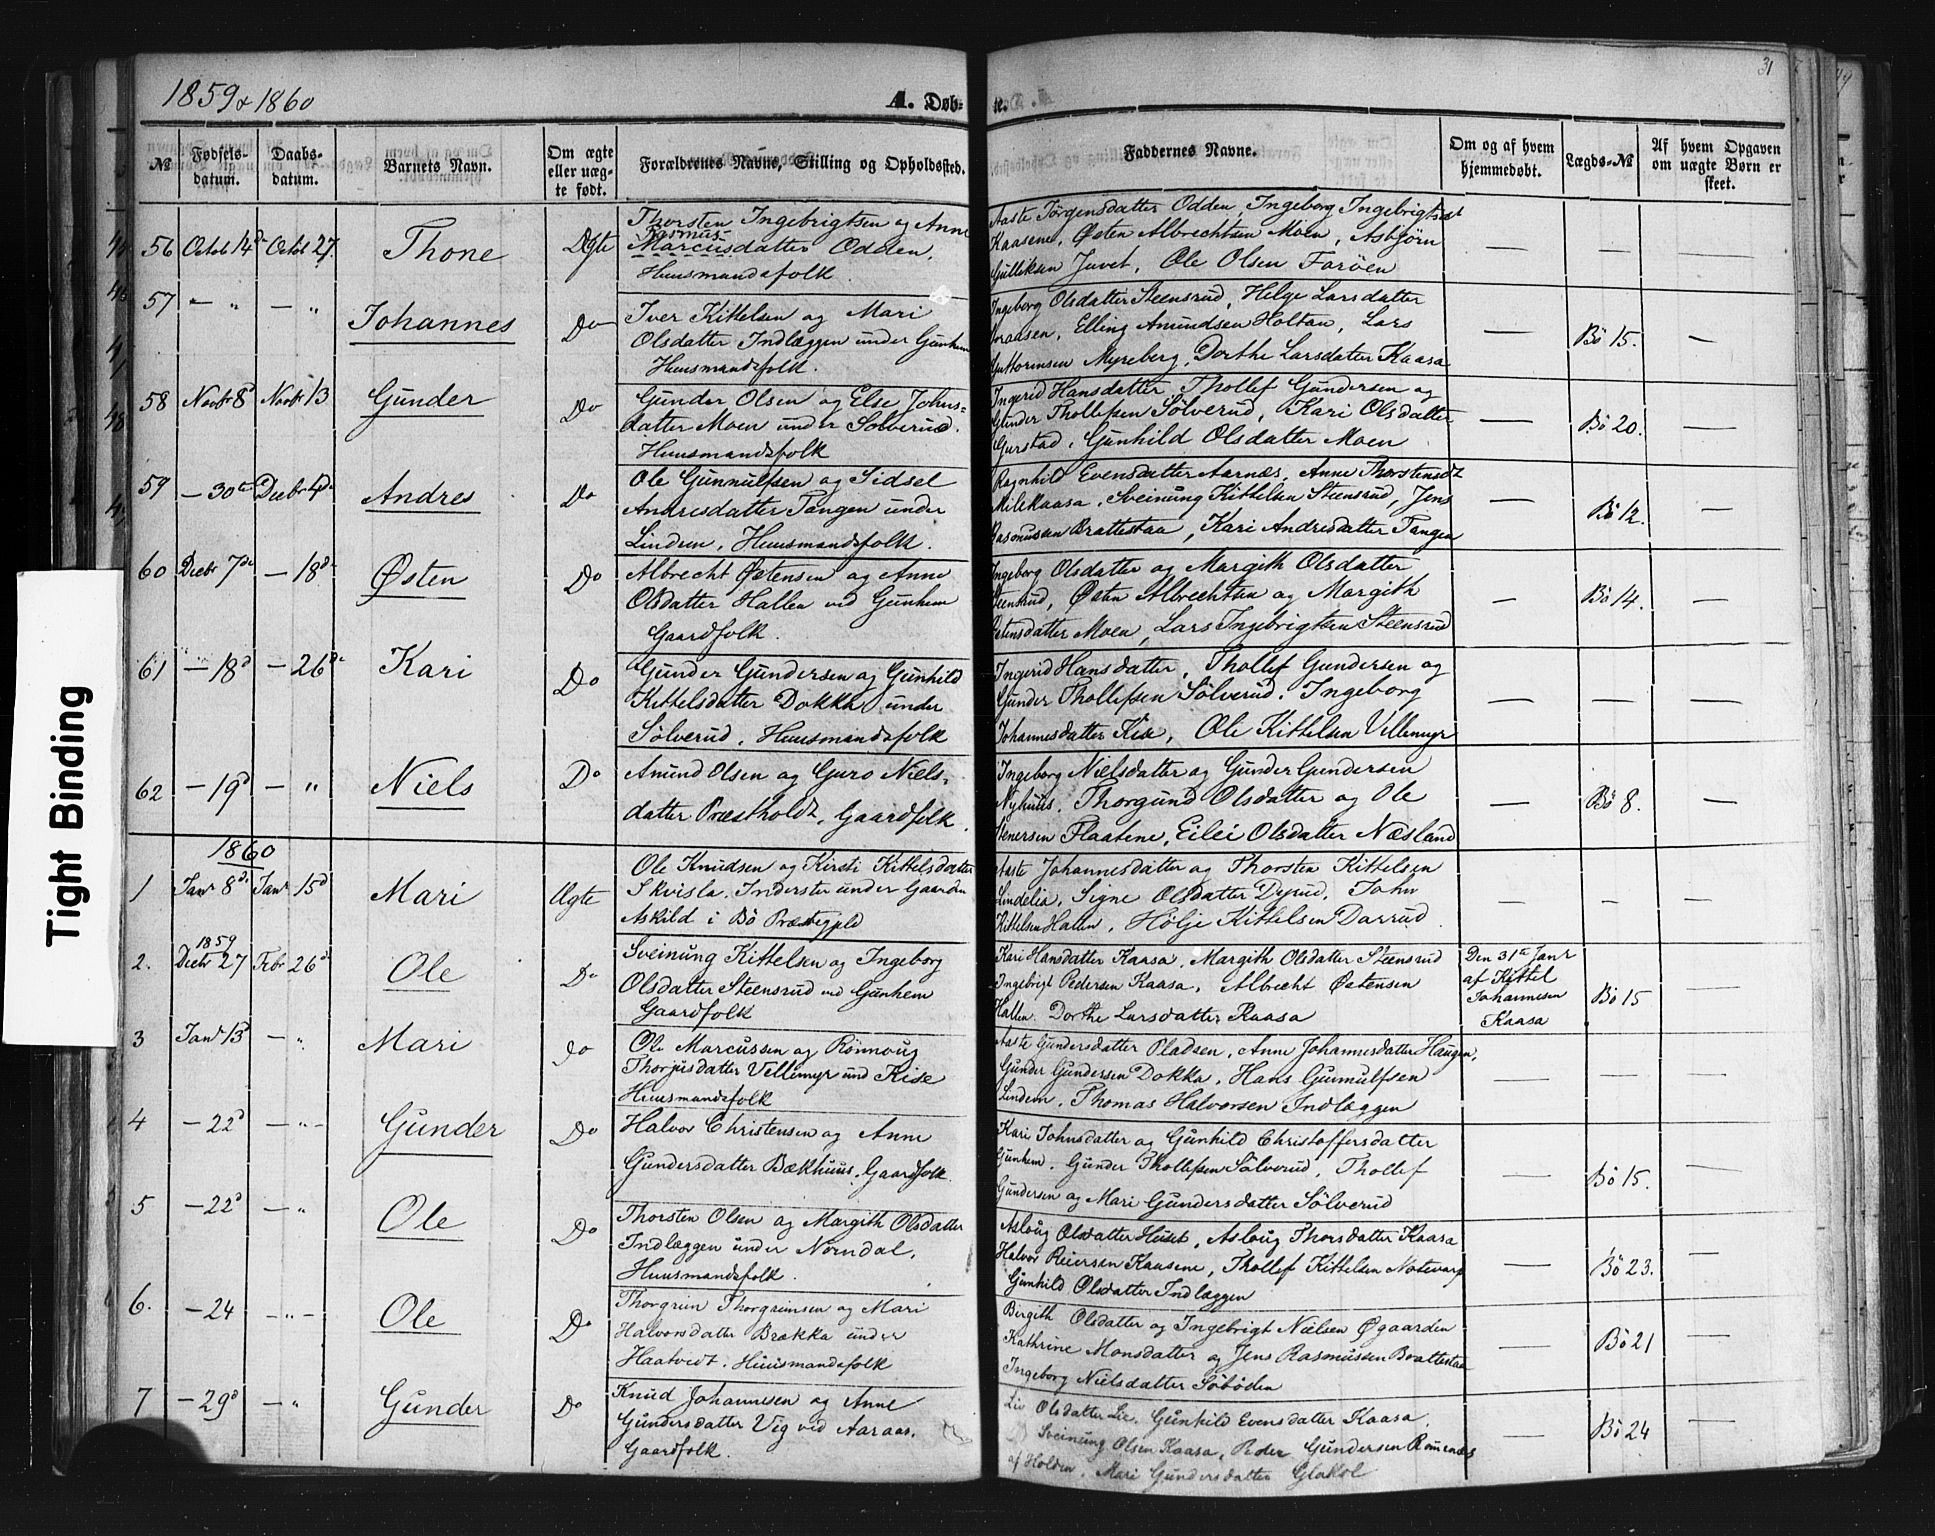 1859 & 1860
A. Døb-
te.
31
№
Fødsels-
datum.
Daabs-
datum.
Barnets Navn.
Om ægte
eller uæg-
te født.
Forældrenes Navne, Stilling og Opholdssted.
Faddernes Navne.
Om og af hvem
hjemmedøbt.
Lægds-№
Af hvem Opgaven
om uægte Børn er
skeet.
56 Octob 14d Octob 27. Thone Ægte
Thorsten Ingebrigtsen og Anne
Rasmus-
Marcusdatter Odden,
Huusmandsfolk.
Aaste Jørgensdatter Odden, Ingeborg Ingebrigtsdt
Kaasene, Østen Albrechtsen Moen, Asbjørn
Gulliksen Juvet, Ole Olsen Farøen
57 — " — " Johannes Do
Iver Kittelsen og Mari
Olsdatter Indlæggen under Gunhem
Huusmandsfolk.
Ingeborg Olsdatter Steensrud, Helge Larsdatter
Braasen, Elling Amundsen Holtan, Lars
Guttormsen Myreberg, Dorthe Larsdatter Kaasa
— Bö 15. —
58 Novbr 8d Novbr 13 Gunder Do
Gunder Olsen og Else Johns-
datter Moen under Sølverud.
Huusmandsfolk
Ingerid Hansdatter, Thollef Gundersen og
Gunder Thollefsen Sølverud, Kari Olsdatter
Gurstad, Gunhild Olsdatter Moen
— Bö 20. —
59 — 30te Decbr 4de Andres Do
Ole Gunnulfsen og Sidsel
Andresdatter Tangen under
Lindem, Huusmandsfolk.
Ragnhild Evensdatter Aarnæs, Anne Thorstensdt
Milekaasa, Sveinung Kittelsen Steensrud, Jens
Rasmussen Brattestaa, Kari Andresdatter Tangen
— Bö 12. —
60 Decbr 7de — 18de Østen Do
Albrecht Østensen og Anne
Olsdatter Hallen ved Gunhem
Gaardfolk.
Ingeborg Olsdatter og Margith Olsdatter
Steensrud, Østen Albrechtsen og Margith
Østensdatter Moen, Lars Ingebrigtsen Steensrud
— Bö 14. —
61 — 18d — 26de Kari Do
Gunder Gundersen og Gunhild
Kittelsdatter Dokka under
Sølverud, Huusmandsfolk
Ingerid Hansdatter, Thollef Gundersen og
Gunder Thollefsen Sølverud, Ingeborg
Johannesdatter Kise, Ole Kittelsen Vellemyr
62 — 19d — " Niels Do
Amund Olsen og Guro Niels-
datter Præstholdt, Gaardfolk.
Ingeborg Nielsdatter og Gunder Gundersen
Nyhuus, Thorgund Olsdatter og Ole
Stenersen Flaatene, Eilei Olsdatter Næsland
— Bö 8. —
1860
1 Janr 8d. Janr 15d Mari Ægte
Ole Knudsen og Kirsti Kittelsdatter
Skvisla. Inderster under Gaarden
Askild i Bö Præstegjeld
Aaste Johannesdatter og Thorsten Kittelsen
Lindelia, Signe Olsdatter Dyrud, John
Kittelsen Hallen, Hølje Kittelsen Darrud
1859
2. Decbr 27 Febr 26d Ole Do
Sveinung Kittelsen og Ingeborg
Olsdatter Steensrud ved Gunhem
Gaardfolk
Kari Hansdatter Kaasa, Margith Olsdatter Steensrud
Ingebrigt Pedersen Kaasa, Albrecht Østensen
Hallen. Dorthe Larsdatter Kaasa
Den 31te Janr
af Kittel
Johannesen
Kaasa
Bö 15 —
3 Janr 13d — " Mari Do
Ole Marcussen og Rønnoug
Thorjusdatter Vellemyr und Kise
Huusmandsfolk
Aaste Gundersdatter Pladsen, Anne Johannesdatter Haugen,
Gunder Gundersen Dokka, Hans Gunnulfsen
Lindem, Thomas Halvorsen Indlæggen
4 — 22d — " — Gunder Do
Halvor Christensen og Anne
Gundersdatter Bækhuus, Gaardfolk.
Kari Johnsdatter og Gunhild Christoffersdatter
Gunhem. Gunder Thollefsen Sølverud, Thollef
Gundersen og Mari Gundersdatter Sølverud
— Bö 15. —
5 — 22d — " Ole Do
Thorsten Olsen og Margith Olsdatter
Indlæggen under Norndal.
Huusmandsfolk.
Aslaug Olsdatter Huset, Aslaug Thorsdatter Kaasa
Halvor Reiersen Kaasene, Thollef Kittelsen Notevarp
Gunhild Olsdatter Indlæggen
— Bö 23. —
6. — 24 — " — Ole Do
Thorgrim Thorgrimsen og Mari
Halvorsdatter Brækka under
Haatvedt. Huusmandsfolk
Bergith Olsdatter og Ingebrigt Nielsen Øgaarden
Kathrine Monsdatter og Jens Rasmussen Brattestaa
Ingeborg Nielsdatter Søbøden
— Bö 21 —
7 — 29d — " Gunder Do
Knud Johannesen og Anne
Gundersdatter Vig ved Aaraas.
Gaardfolk.
Liv Olsdatter Lie. Gunhild Evensdatter Kaasa.
Sveinung Olsen Kaasa, Peder Gundersen Romenæs
af Holden, Mari Gundersdatter
— Bö 24 —
Tight Binding